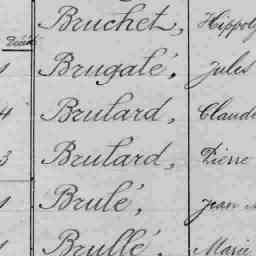 Bruchet, Hippoly
Décédé
1 Brugalé, Jules
4 Brulard, Claude
3 Brulard, Pierre
1 Brulé, Jean
1 Brullé, Marie